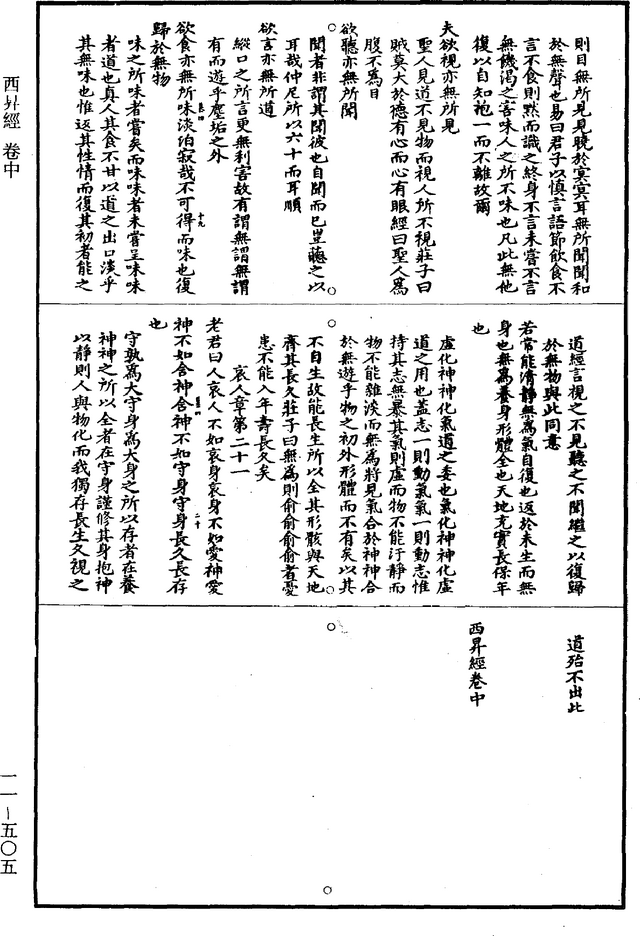 則目無所見見曉於冥冥耳無所聞聞和
於無聲也易曰君子以慎言語節飲食不
言不食則黙而識之終身不言未嘗不言
無饑渴之害味人之所不味也凡此無他
復以自知抱一而不離故爾
夫欲視亦無所見
聖人見道不見物而視人所不視莊子曰
賊莫大於德有心而心有眼經曰聖人爲
腹不爲目
欲聽亦無所聞
聞者非謂其聞彼也自聞而已豈聽之以
耳哉仲尼所以六十而耳順
欲言亦無所道
縱口之所言更無利害故有謂無謂無謂
有而遊乎塵垢之外
欲食亦無所味淡泊寂哉不可得而味也復
十九
歸於無物
味之所味者嘗矣而味味者未嘗呈味味
者道也真人其食不甘以道之出口淡乎
其無味也惟返其性情而復其初者能之
道經言視之不見聽之不聞繼之以復歸
於無物與此同意
若常能清靜無爲氣自復也返於未生而無
身也無爲養身形體全也天地充實長保年
也
虛化神神化氣道之委也氣化神神化虛
道之用也蓋志一則動氣氣一則動志惟
持其志無暴其氣則虛而物不能汙靜而
物不能雜淡而無爲將見氣合於神神合
於無遊乎物之初外形體而不有矣以其
不自生故能長生所以全其形骸與天地
齊其長久莊子曰無爲則俞俞俞俞者憂
患不能入年壽長久矣
哀人章第二十一
老君曰人哀人不如哀身哀身不如愛神愛
神不如含神含神不如守身守身長久長存
二十
也
守孰爲大守身爲大身之所以存者在養
神神之所以全者在守身謹修其身抱神
以靜則人與物化而我獨存長生久視之
道殆不出此
西昇經卷中
西昇經 卷中
一一－五〇五